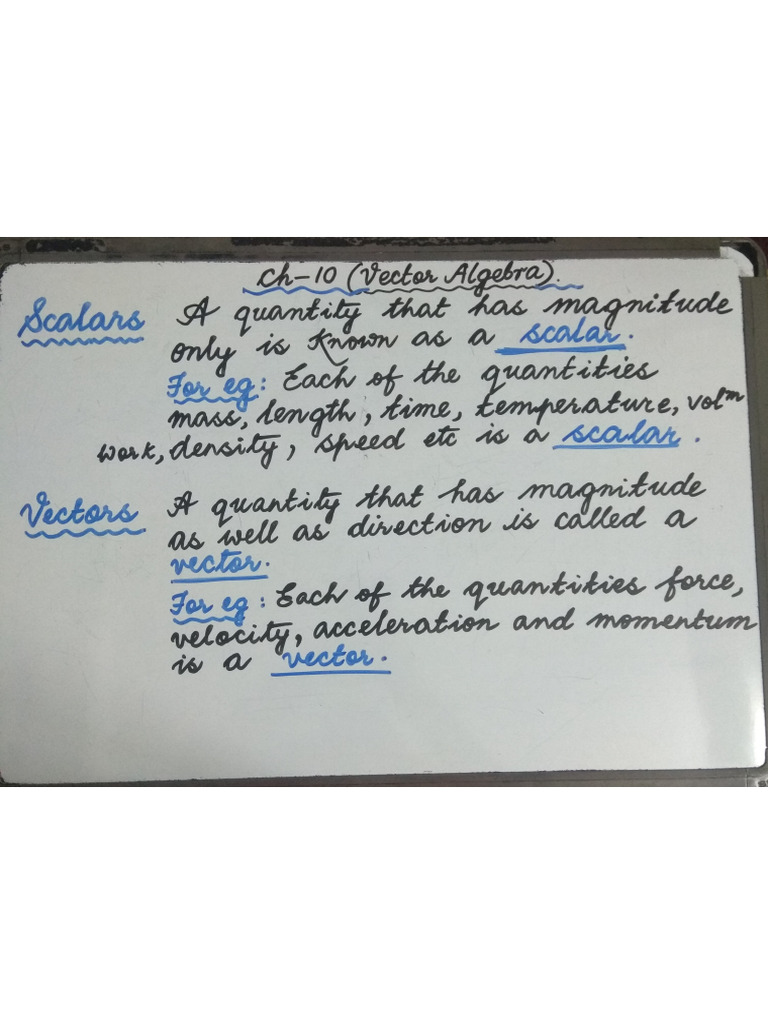 Ch-10 (Vector Algebra).
Scalars A quantity that has magnitude
only is known as a scalar.
For eg: Each of the quantities
mass, length, time, temperature, volᵐ
work, density, speed etc is a scalar.
Vectors A quantity that has magnitude
as well as direction is called a
vector.
For eg: Each of the quantities force,
velocity, acceleration and momentum
is a vector.